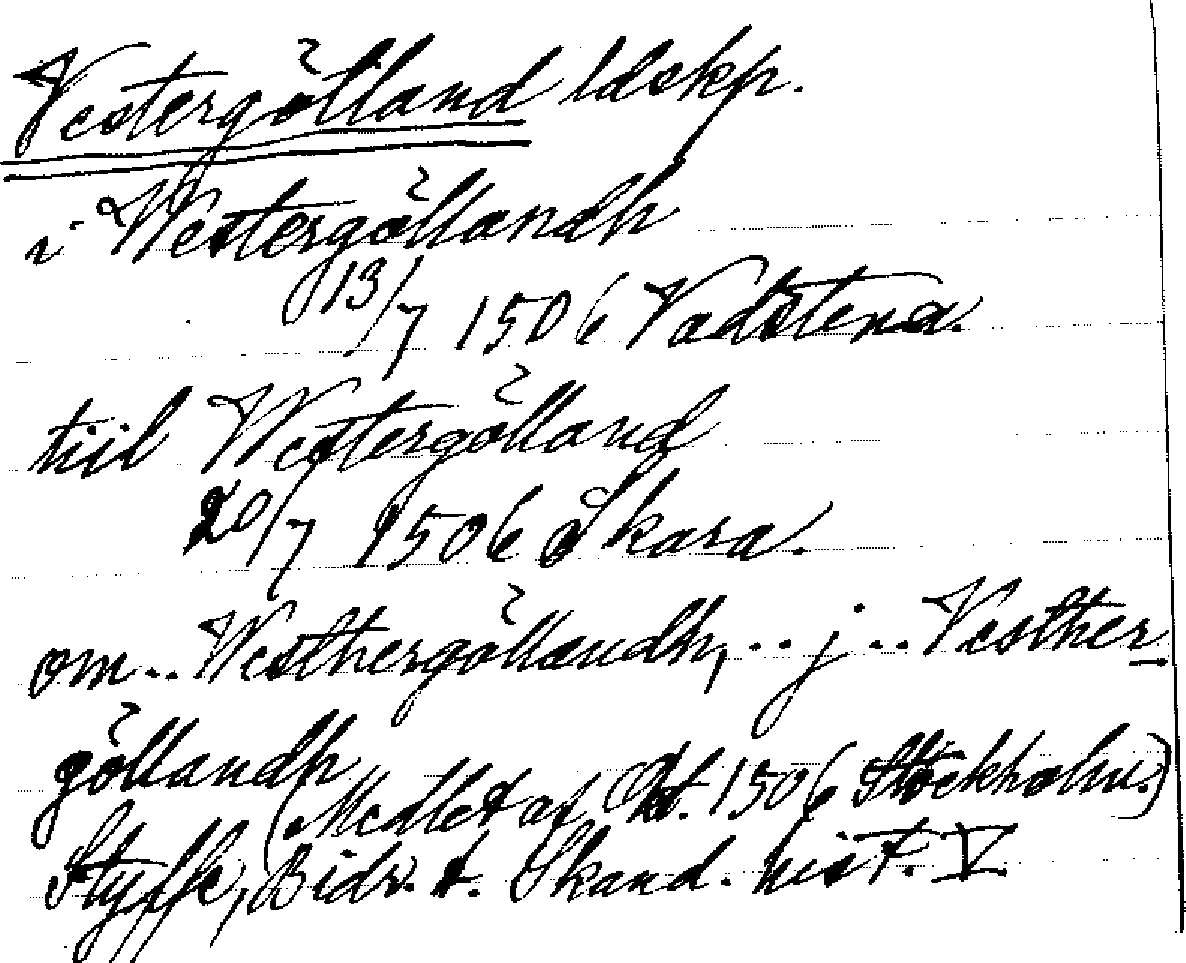 Vestergötland ldskp.
i Westergötlandh
13/7 1506 Vadstena.
tiil Westergötland
20/7 1506 Skara.
om .. Westhergötlandh, .. j .. Vesther
götlandh
(Medlet af Okt. 1506 Stockholm.)
Styffe, Bidr. t. Skand. hist. V.